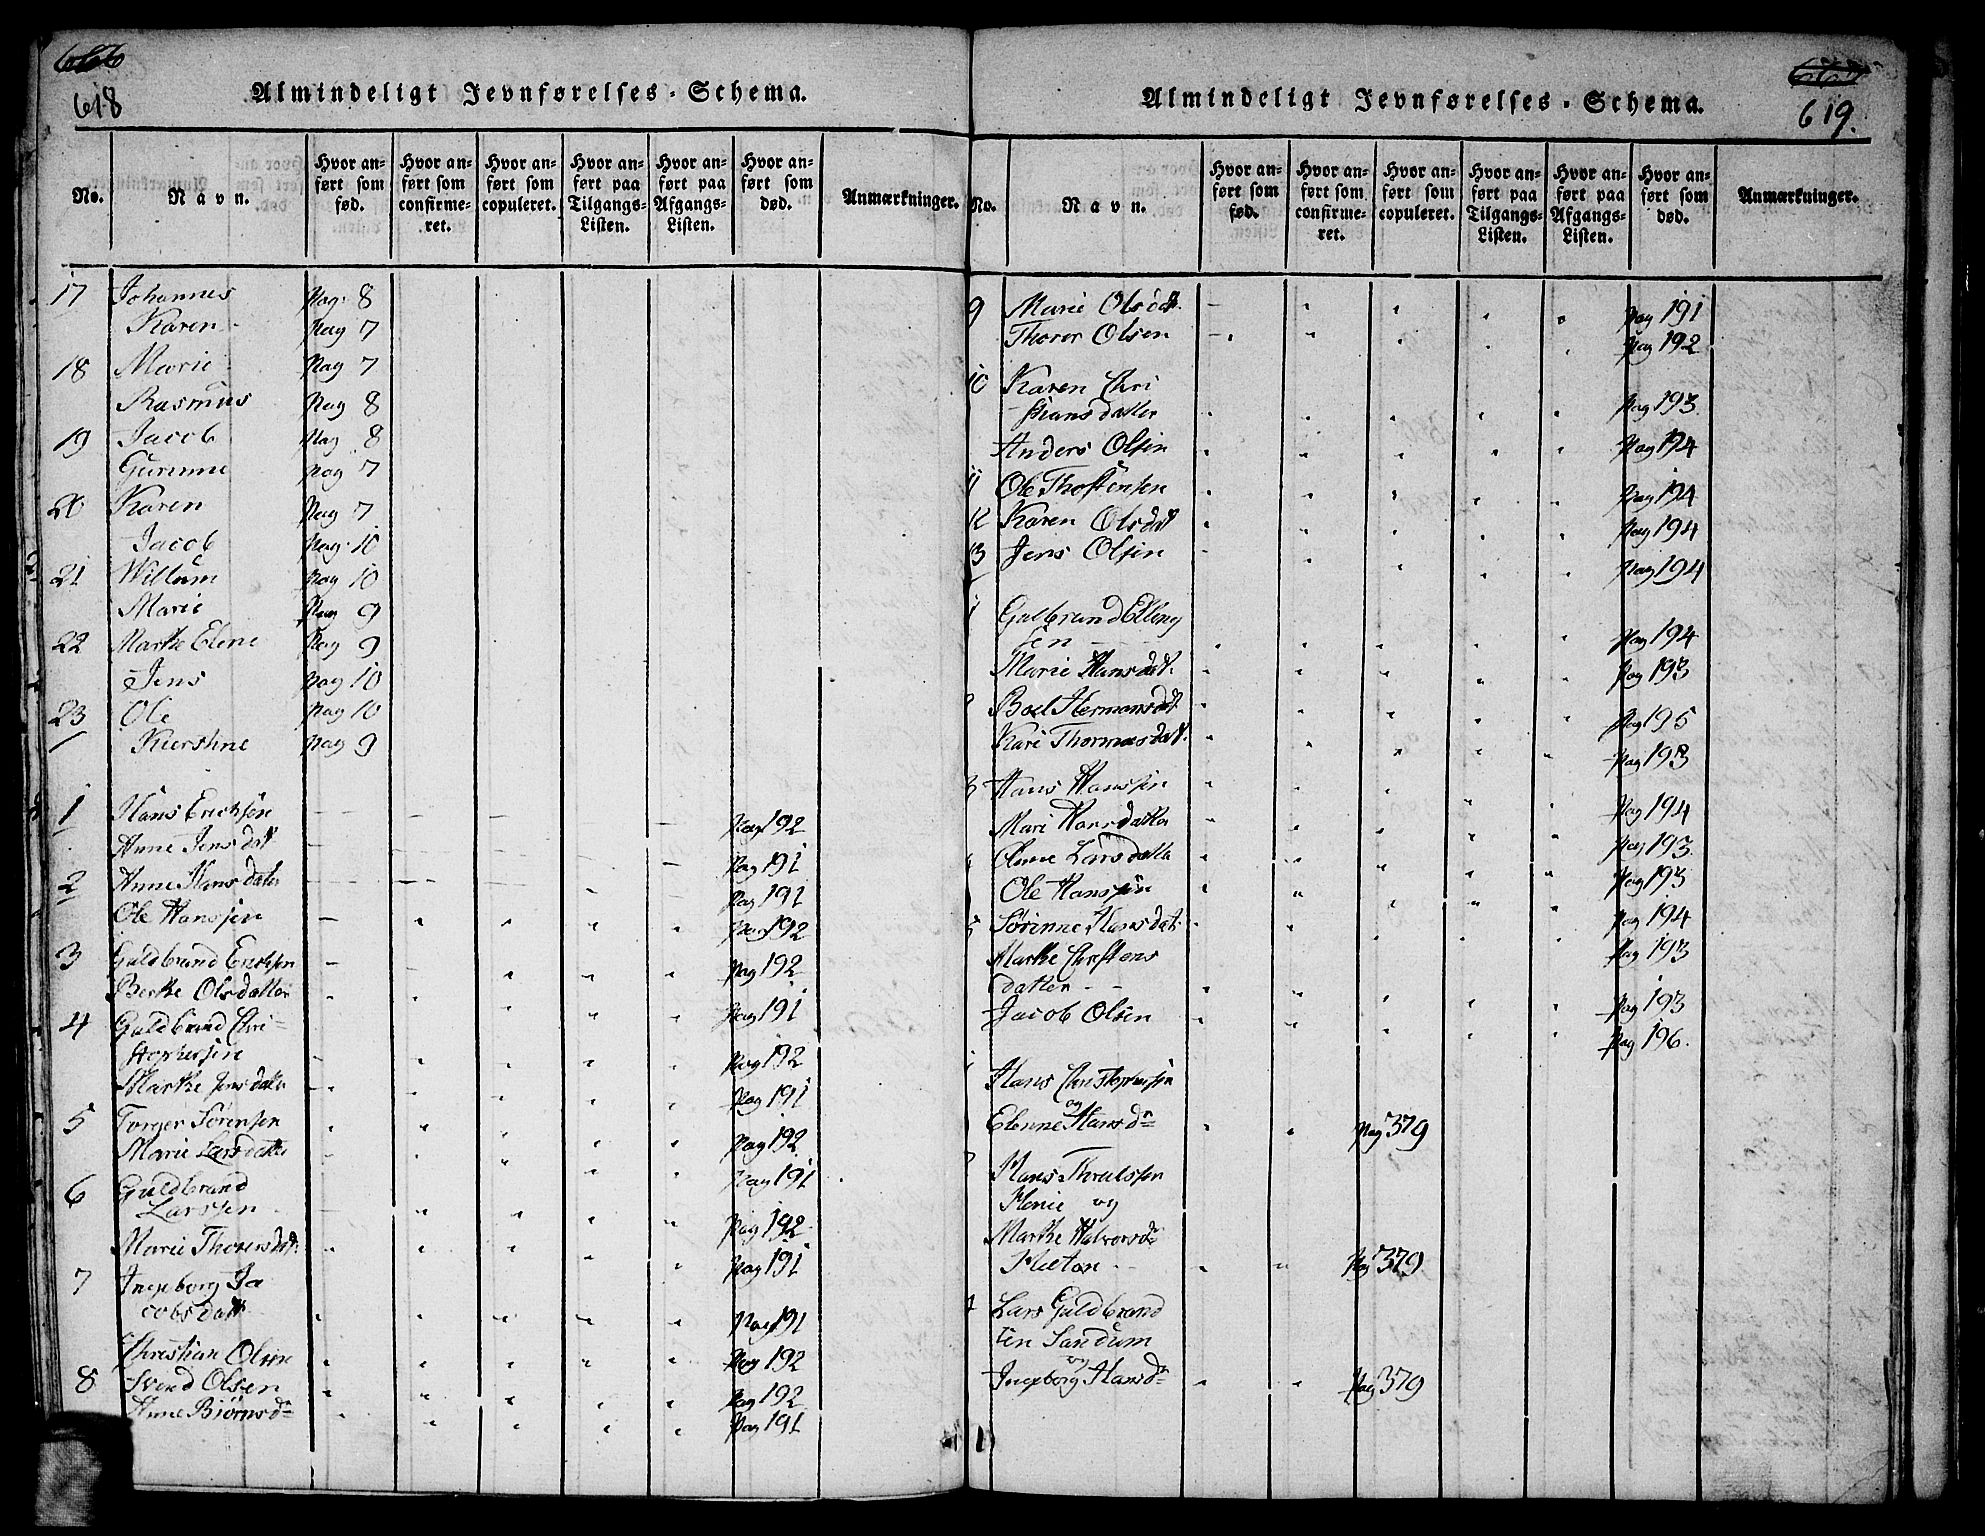 666
618
Almindeligt Jevnførelses-Schema.
No.
Navn.
Hvor anført som fød.
Hvor anført som confirmeret.
Hvor anført som copuleret.
Hvor anført paa Tilgangs-Listen.
Hvor anført paa Afgangs-Listen.
Hvor anført som død.
Anmærkninger.
17 Johannes Pag. 8
Karen Pag 7
18 Marie Pag 7
Rasmus Pag 8
19 Jacob Pag 8
Gurinne Pag 7
20 Karen Pag 7
Jacob Pag. 10
21 Willum Pag 10
Marie Pag 9
22 Marthe Elene Pag 9
Jens Pag 10
23 Ole Pag 10
Kierstine Pag 9
1 Hans Erichsen Pag 192
Anne Jensdat Pag 191
2 Anne Hansdater Pag 191
Ole Hanssen Pag 192
3 Guldbrand Erichsen Pag 192
Berthe Olsdatter Pag 191
4 Guldbrand Chri-
stophersen Pag 192
Marthe Jensdatter Pag 191
5 Torger Sørensen Pag 192
Marie Larsdatter Pag 191
6 Guldbrand
Larssen Pag 192
Marie Thorersdat. Pag 191
7 Ingeborg Ja
cobsdatt Pag 191
Christian Olsen Pag 192
8 Svend Olsen Pag 192
Anne Biørnsdr Pag 191
667
619.
Almindeligt Jevnførelses-Schema.
No.
Navn.
Hvor anført som fød.
Hvor anført som confirmeret.
Hvor anført som copuleret.
Hvor anført paa Tilgangs-Listen.
Hvor anført paa Afgangs-Listen.
Hvor anført som død.
Anmærkninger.
9 Marie Olsdatt. Pag 191
Thorer Olsen Pag 192
10 Karen Chri
stiansdatter Pag 193
Anders Olsen Pag 194
11 Ole Thostensen Pag 194
12 Karen Olsdat Pag 194
13 Jens Olsen Pag 194
1 Gulbrand Elling
sen Pag 194
Marie Hansdat. Pag 193
2 Boel Hermansdat Pag 195
Kari Thormasdat. Pag 193
3 Hans Hanssen Pag 194
Mari Hansdatter Pag 193
Larsdatter Pag 193
Ole Hanssen Pag 194
5 Sørinne Hansdat. Pag 193
Marthe Christens
datter Pag 193
Jacob Olsen Pag 196.
1 Hans Christophersen
og
Elenne Hansdr Pag 379
2 Hans
og
Marthe Halvorsdr
Pag 379
Lars Guldbrand
sen Sandum
og
Ingeborg Hansdr Pag 379